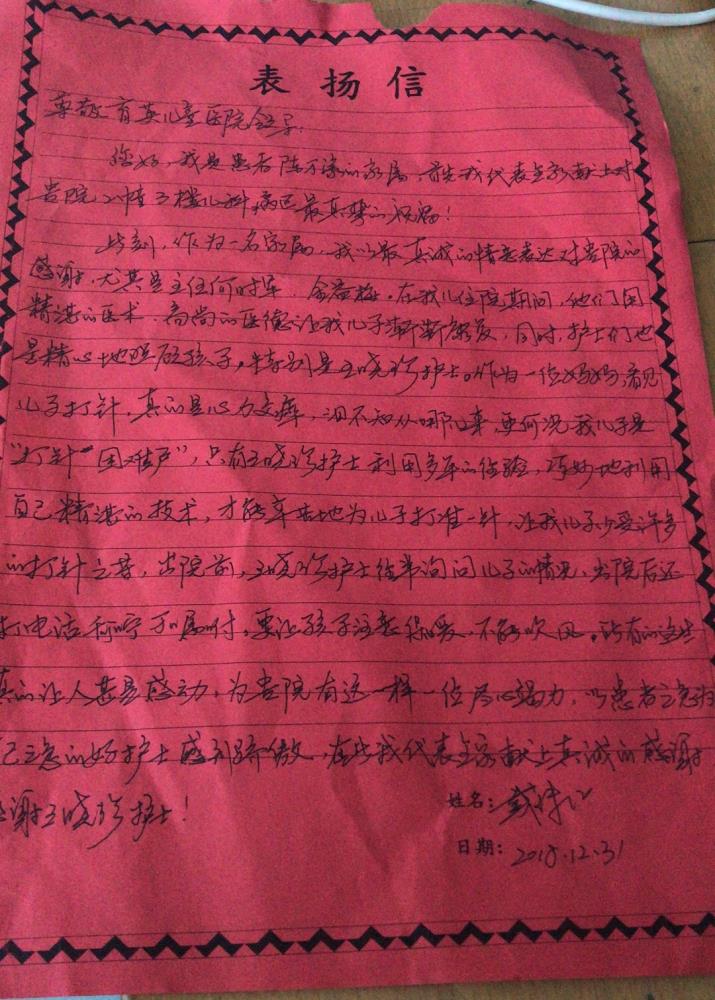 表扬信
尊敬育英儿童医院领导:
您好,我是患者陈万的家属,首先我代表全家献上对
贵院二幢三楼儿科病区最真挚的祝福!
此刻,作为一名家属,我以最真诚的情意表达对贵院的
感谢,尤其是主任何时军、余益梅,在我儿住院期间,他们用
精湛的医术、高尚的医德让我儿子渐渐康复,同时,护士们也
是精心地照顾孩子,特别是王晓珍护士。作为一位妈妈,看见
儿子打针,真的是心力交瘁,泪不知从哪儿来,更何况我儿子是
“打针”困难户”,只有王晓珍护士利用多年的经验,巧妙地利用
自己精湛的技术,才能幸运地为儿子打准一针,让我儿子少受许多
的打针之苦,出院前,王晓珍护士经常询问儿子的情况,出院后还
打电话叮咛和属咐,要让孩子注意保暖,不能吹风。所有的这些
真的让人甚是感动,为贵院有这一样一位尽心竭力,以患者之急为
己之急的好护士感到骄傲,在此我代表全家献上真诚的感谢
感谢王晓珍护士!
姓名:戴
日期:2018.12.31